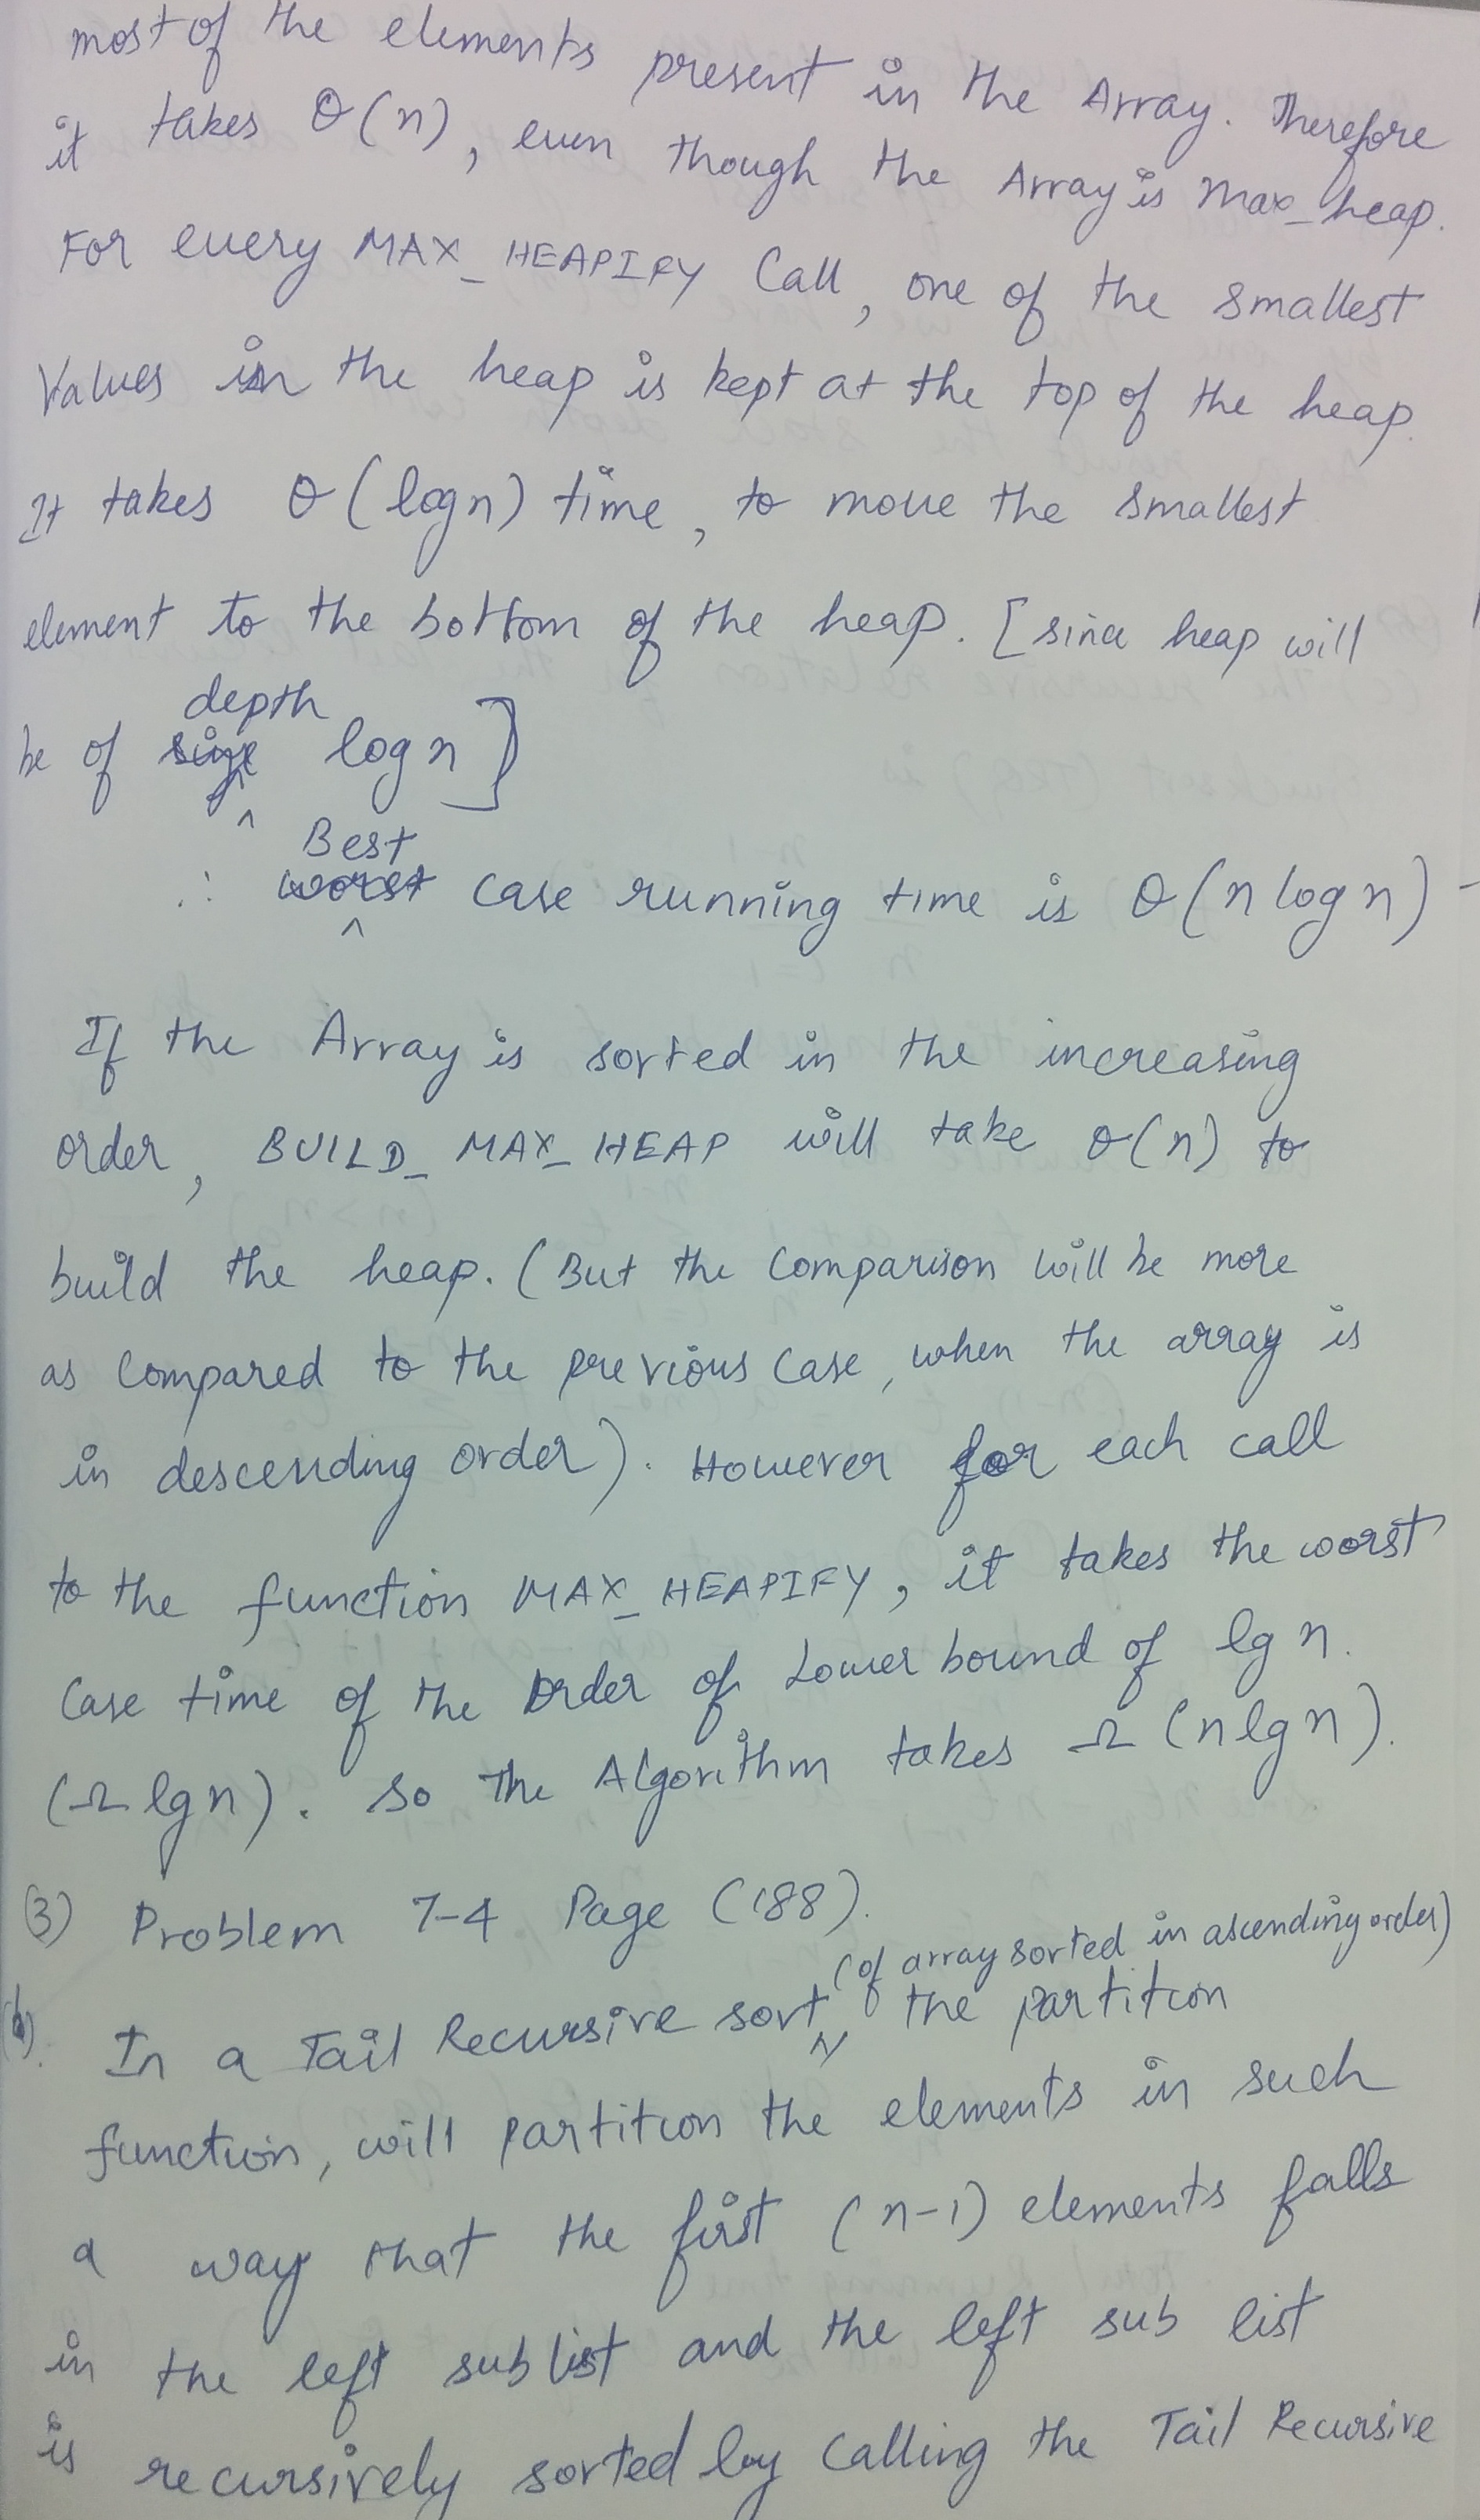 most of the elements present in the Array. Therefore
it takes θ(n), even though the Array is max_heap.
For every MAX_HEAPIFY Call, one of the smallest
Values in the heap is kept at the top of the heap.
It takes θ(log n) time, to move the smallest
element to the bottom of the heap. [since heap will
depth
be of size log n]
Best
∴ worst case running time is θ(n log n) -
If the Array is sorted in the increasing
order, BUILD_MAX_HEAP will take θ(n) to
build the heap. (But the Comparison will be more
as Compared to the previous Case, when the array is
in descending order). However for each call
to the function MAX_HEAPIFY, it takes the worst
Case time of the Order of Lower bound of lg n.
(Ω lg n). So the Algorithm takes Ω (n lg n).
(3) Problem 7-4 Page (188).
(of array sorted in ascending order)
In a Tail Recursive sort, the partition
function, will partition the elements in such
a way that the first (n-1) elements falls
in the left sub list and the left sub list
is recursively sorted by Calling the Tail Recursive